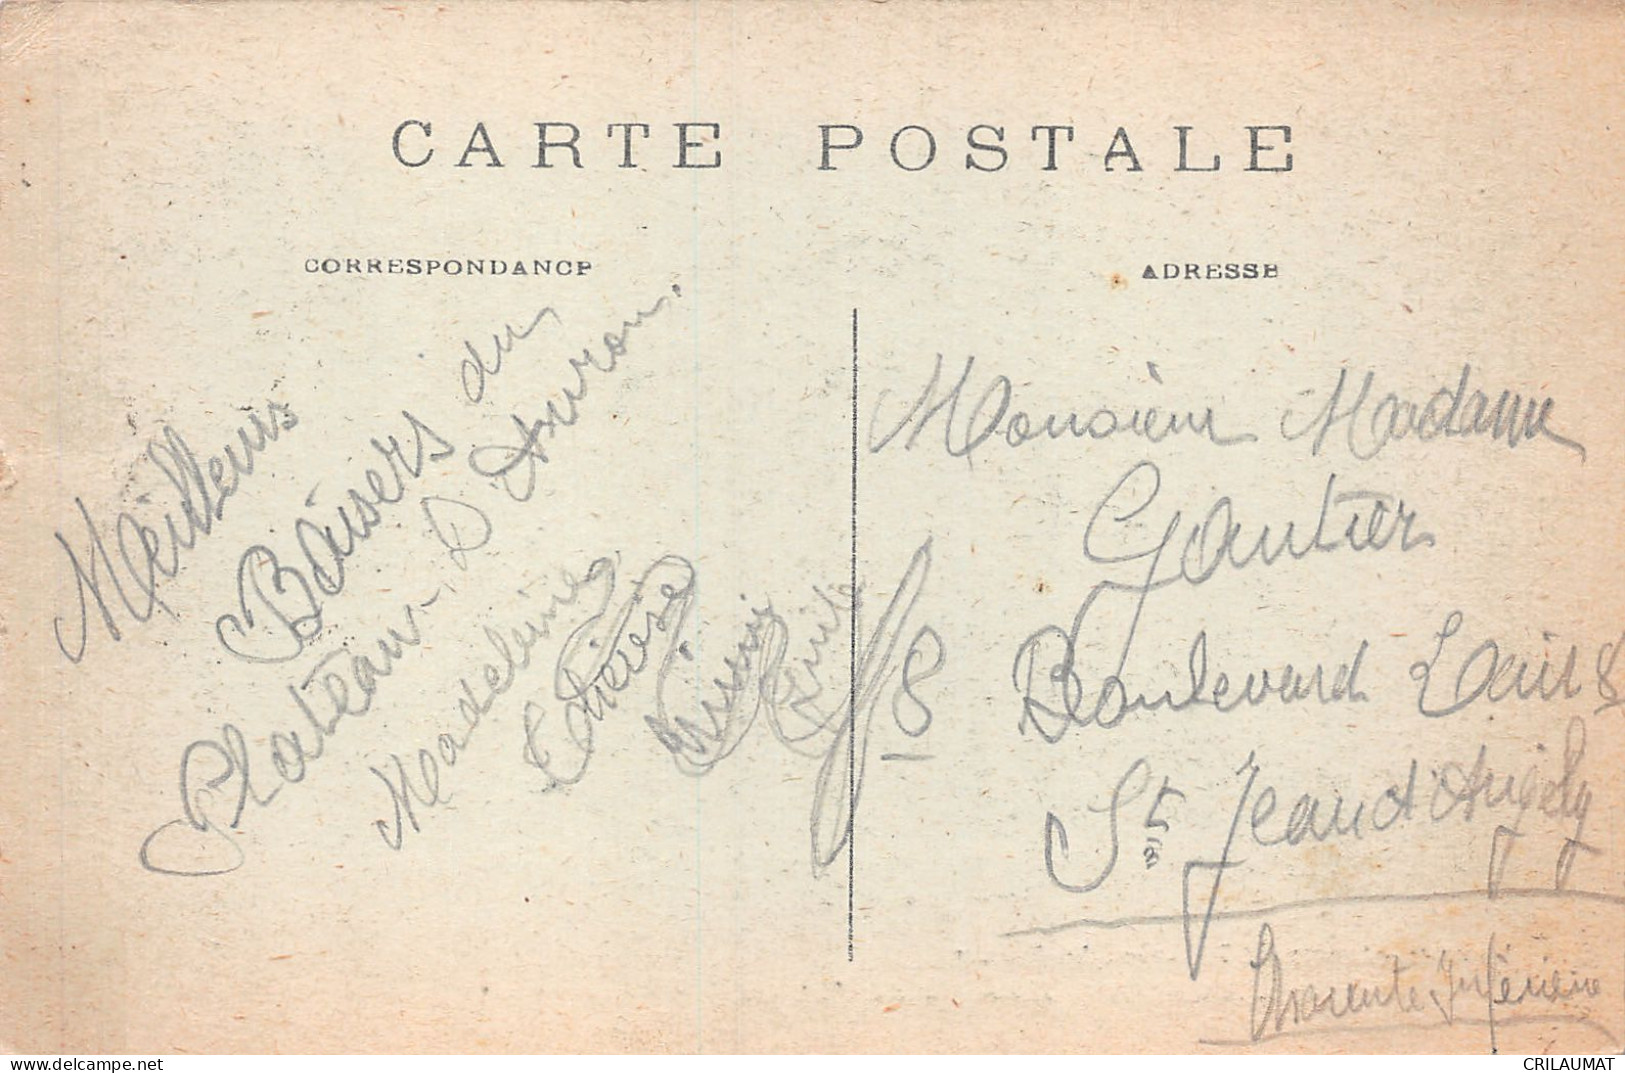 CARTE POSTALE
CORRESPONDANCE
ADRESSE
Meilleurs
Baisers du
Plateau-D'Avron.
Madeleine
Monsieur Madame
Gautier
8 Boulevard Lair 8
St Jean d'Angely
Charente Inférieure
CRILAUMAT